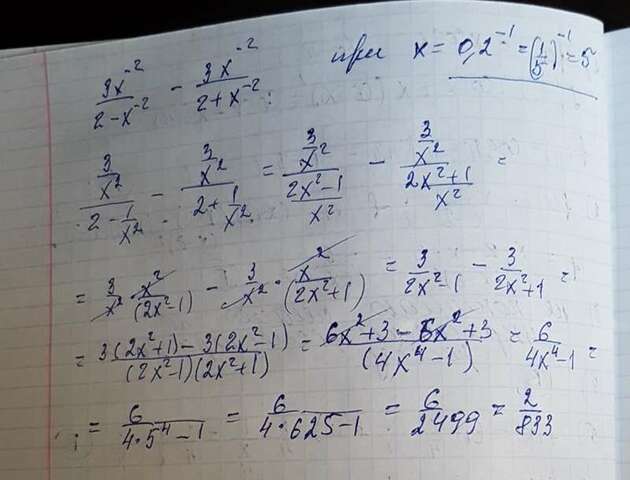 3x⁻²/(2-x⁻²) - 3x⁻²/(2+x⁻²) при x = 0,2⁻¹ = (1/5)⁻¹ = 5
(3/x²)/(2 - 1/x²) - (3/x²)/(2 + 1/x²) = (3/x²)/((2x²-1)/x²) - (3/x²)/((2x²+1)/x²) =
= 3/x² · x²/(2x²-1) - 3/x² · x²/(2x²+1) = 3/(2x²-1) - 3/(2x²+1) =
= (3(2x²+1) - 3(2x²-1))/((2x²-1)(2x²+1)) = (6x²+3-6x²+3)/(4x⁴-1) = 6/(4x⁴-1) =
= 6/(4·5⁴-1) = 6/(4·625-1) = 6/2499 = 2/833